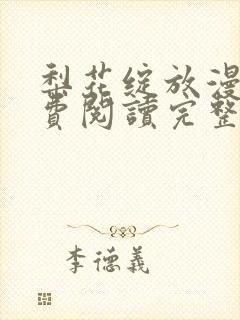 梨花綻放漫
費閱讀完整
李德義